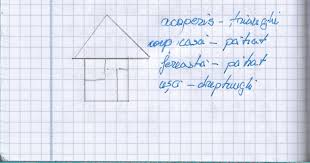 acoperis - triunghi
corp casă - pătrat
fereastă - pătrat
uși - dreptunghi